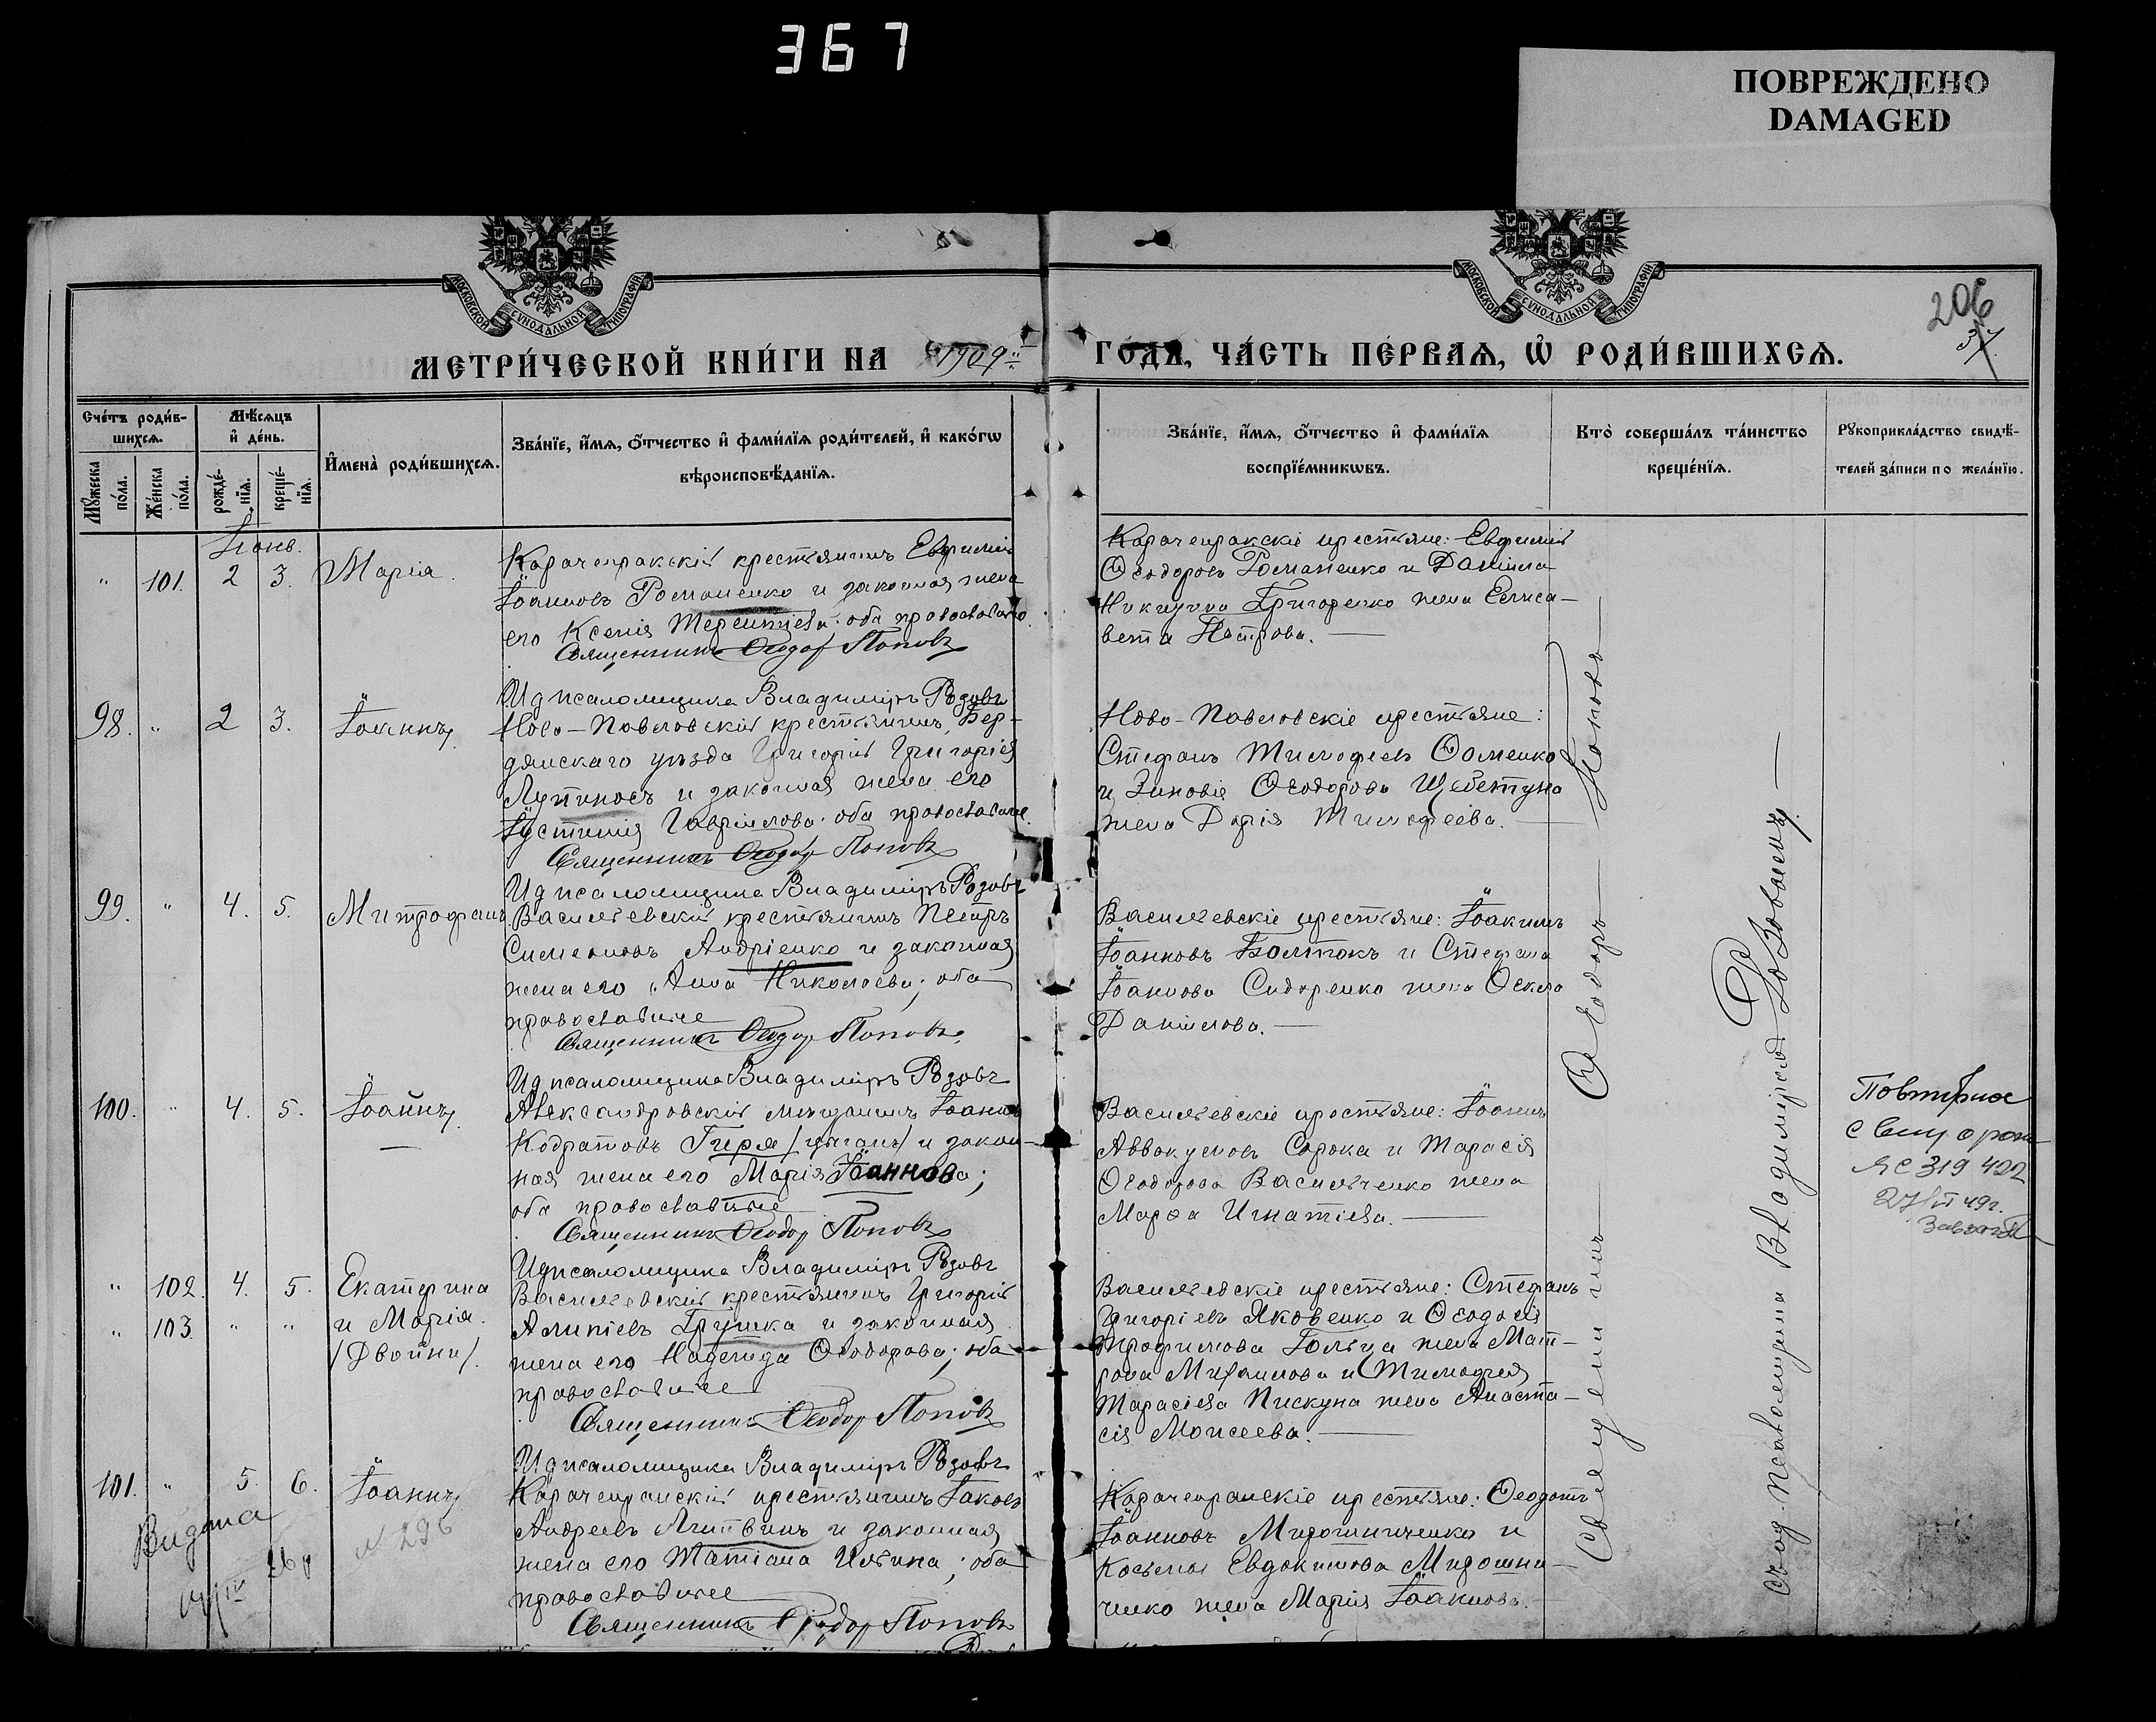 367
ПОВРЕЖДЕНО
DAMAGED
МОСКОВСКОЙ СѴНОДАЛЬНОЙ ТИПОГРАФІИ
МОСКОВСКОЙ СѴНОДАЛЬНОЙ ТИПОГРАФІИ
206
37
МЕТРИ́ЧЕСКОЙ КНИ́ГИ НА 1909й ГО́ДЪ, ЧА́СТЬ ПЕ́РВАѦ, Ѡ҆ РОДИ́ВШИХСѦ.
Сче́тъ роди́в-
шихсѧ.
Мꙋ́жеска по́ла.
Же́нска по́ла.
Мѣ́сѧцъ
и҆ де́нь.
рожде́-
нїѧ.
креще́-
нїѧ.
И҆мена̀ роди́вшихсѧ.
Зва́нїе, и҆́мѧ, ѻ҆́тчество и҆ фами́лїѧ роди́телей, и҆ како́гѡ
вѣроисповѣ́данїѧ.
Зва́нїе, и҆́мѧ, ѻ҆́тчество и҆ фами́лїѧ
воспрїе́мникѡвъ.
Кто̀ соверша́лъ та́инство
креще́нїѧ.
Рꙋкоприкла́дство свидѣ́-
телей за́писи по жела́нїю.
" 101. 2 3. Марія.
Карачекракскій крестьянинъ Евфимій
Іоанновъ Романенко и законная жена
его Ксенія Терентіева; оба православн.
Священникъ Ѳеодор Поповъ
Карачекракскіе крестьяне: Евфимій
Ѳеодоровъ Романенко и Даніила
Никитина Григоренко жена Елиса-
вета Петрова.
Ид псаломщика Владиміръ Розовъ
98. " 2 3. Іоаннъ.
Ново-Павловскій крестьянинъ, Бер-
дянскаго уѣзда Григорій Григорія
и законная жена его
Іустинія Гавріилова; оба православные.
Священникъ Ѳеодор Поповъ
Ново-Павловскіе крестьяне:
Стефанъ Тимофеевъ Ѳоменко
и Зиновіе Ѳеодорова Щебетуна
жена Дарія Тимофеева.
Ид псаломщика Владиміръ Розовъ
99. " 4. 5. Митрофанъ
Васильевскій крестьянинъ Петръ
Симеоновъ Андріенко и законная
жена его Анна Николаева; оба
православные
Священникъ Ѳеодор Поповъ
Васильевскіе крестьяне: Іоакимъ
Іоанновъ Болтокъ и Стефана
Іоаннова Сидоренко жена Ѳекла
Даніилова.
Ид псаломщика Владиміръ Розовъ
100. " 4. 5. Іоаннъ.
Александровскій мещанинъ Іоаннъ
Кодратовъ Гиря /цыганъ/ и закон-
ная жена его Марія Іоаннова;
оба православные
Священникъ Ѳеодор Поповъ
Васильевскіе крестьяне: Іоаннъ
Аввакумовъ Сорока и Тарасія
Ѳеодорова Васильченко жена
Марѳа Игнатіева.
Повторное
ЯС 319 422
49г.
Ид псаломщика Владиміръ Розовъ
" 102. 4. 5. Екатерина
" 103. " " и Марія.
/Двойни/.
Васильевскій крестьянинъ Григорій
Алипіевъ Грушка и законная
жена его Надежда Ѳеодорова; оба
православные
Священникъ Ѳеодор Поповъ
Васильевскіе крестьяне: Стефанъ
Григоріевъ Яковенко и Ѳеодосія
Трофимова Гольца жена Мат-
рона Михаилова и Тимофея
Тарасіева Пискуна жена Анаста-
сія Моисеева.
Ид псаломщика Владиміръ Розовъ
101. " 5. 6. Іоаннъ.
Карачекракскій крестьянинъ Іаковъ
Андреевъ Литвинъ и законная
жена его Татіана Ильина; оба
православные
Священникъ Ѳеодор Поповъ
Карачекракскіе крестьяне: Ѳеодотъ
Іоанновъ Мирошниченко и
Косьмы Евдокимова Мирошни-
ченко жена Марія Іоаннова.
Видана
№ 296
Священникъ Ѳеодоръ Поповъ
псаломщика Владиміромъ Розовымъ.